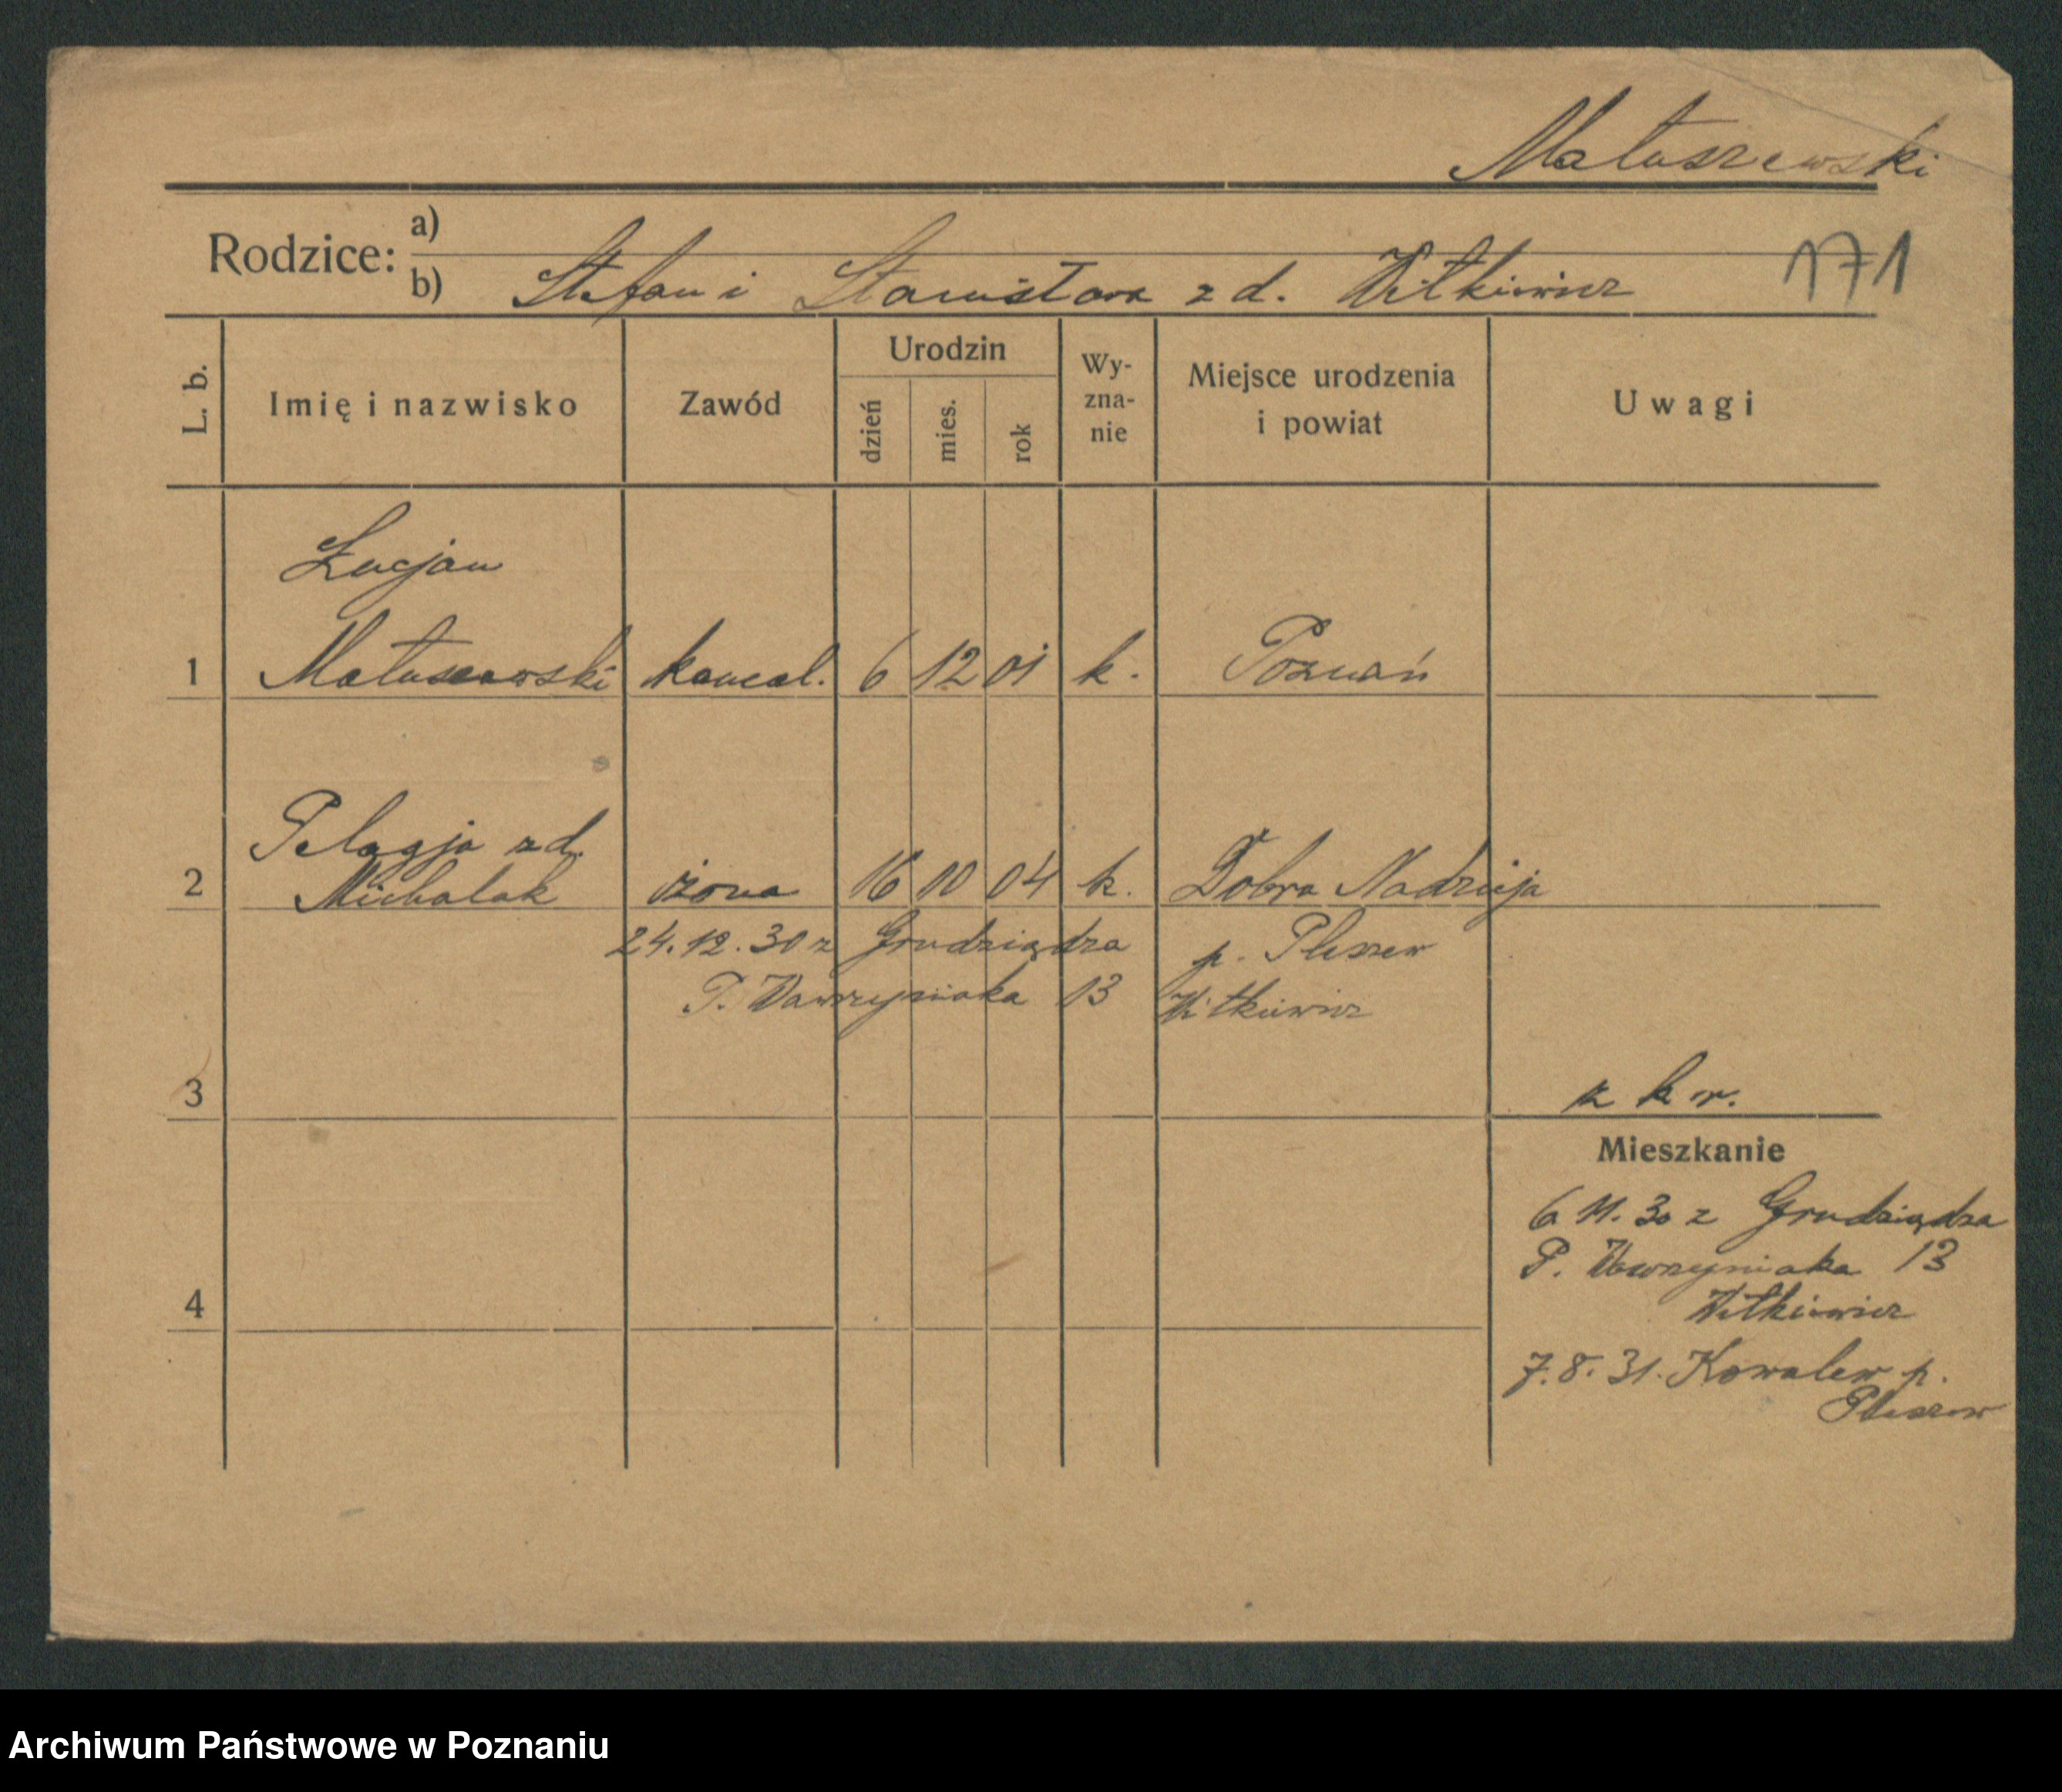 Matuszewski
Rodzice: a)
b) Stefan i Stanisława z d. Witkiewicz
171
L. b.
Imię i nazwisko
Zawód
Urodzin
dzień
mies.
rok
Wy-
zna-
nie
Miejsce urodzenia
i powiat
Uwagi
Łucjan
1 Matuszewski kancel. 6 12 01 k. Poznań
Pelagja z d.
2 Michalak żona 16 10 04 k. Dobra Nadzieja
24.12.30 z Grudziądza p. Pleszew
P. Wawrzyniaka 13 Witkiewicz
3
z k w.
Mieszkanie
6 11. 30 z Grudziądza
P. Wawrzyniaka 13
Witkiewicz
4
7.8.31. Kowalew p.
Pleszew
Archiwum Państwowe w Poznaniu